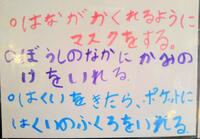 ○はながかくれるように
マスクをする。
○ぼうしのなかにかみの
けをいれる。
○はくいをきたら、ポケットに
はくいのふくろをいれる